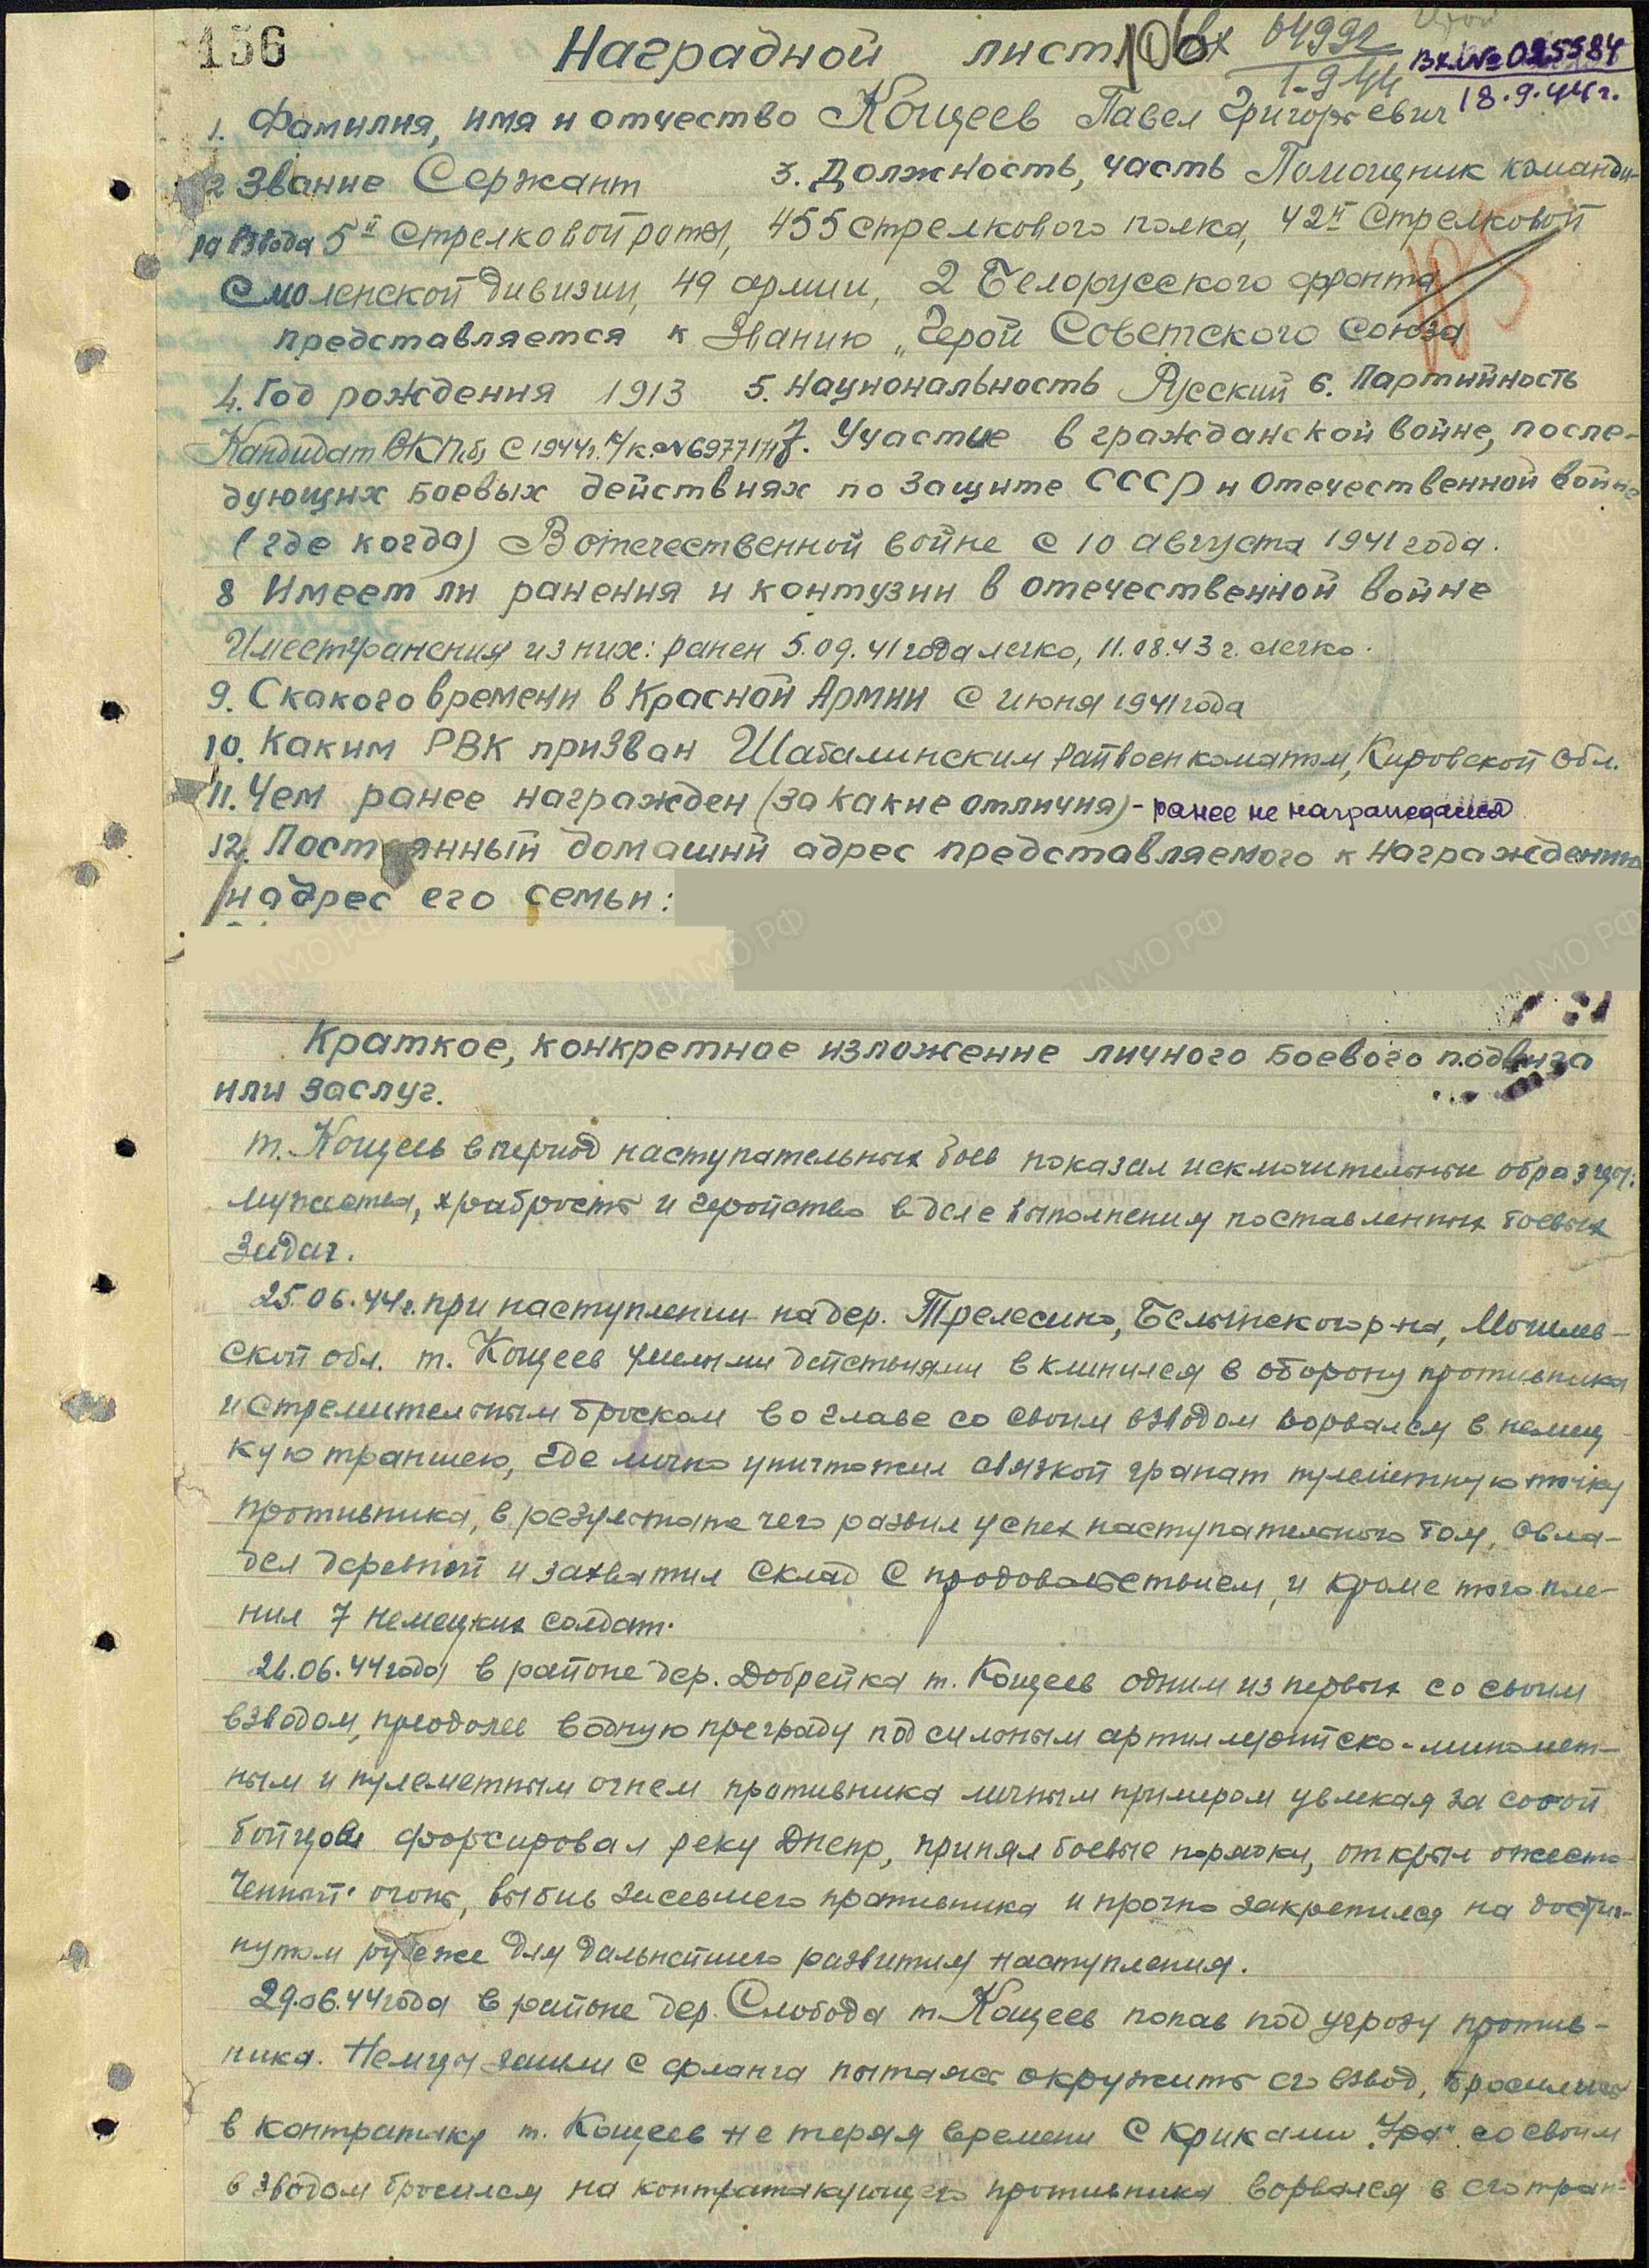 156
Наградной лист
Вх 04992
1-9-44
Вх.№025584
18.9.44г.
1. Фамилия, имя и отчество Кощеев Павел Григорьевич
2 Звание Сержант 3. Должность, часть Помощник команди-
ра взвода 5й Стрелковой роты, 455 стрелкового полка, 42й Стрелковой
Смоленской дивизии, 49 армии, 2 Белорусского фронта
представляется к Званию „Герой Советского Союза
4. Год рождения 1913 5. Национальность Русский 6. Партийность
Кандидат ВКПб, с 1944г. 7. Участие в гражданской войне, после-
дующих боевых действиях по защите СССР и отечественной войне
(где когда) В отечественной войне с 10 августа 1941 года.
8 Имеет ли ранения и контузии в отечественной войне
Имеет ранения из них: ранен 5.09.41 года легко, 11.08.43 г. легко.
9. С какого времени в Красной Армии С июня 1941 года
10. Каким РВК призван Шабалинским райвоенкоматом, Кировской обл.
11. Чем ранее награжден (за какие отличия) - ранее не награждался
12. Постоянный домашний адрес представляемого к награждению
и адрес его семьи:
Краткое, конкретное изложение личного боевого подвига
или заслуг.
т. Кощеев в период наступательных боев показал исключительные образцы:
мужества, храбрость и геройство в деле выполнения поставленных боевых
задач.
25.06.44г. при наступлении на дер. Трелесино, Белынского р-на, Могилев-
ской обл. т. Кощеев умелыми действиями вклинился в оборону противника
и стремительным броском во главе со своим взводом ворвался в немец-
кую траншею, где лично уничтожил связкой гранат пулеметную точку
противника, в результате чего развил успех наступательного боя, овла-
дел деревней и захватил склад с продовольствием, и кроме того пле-
нил 7 немецких солдат.
26.06.44 года в районе дер. Добрейка т. Кощеев одним из первых со своим
взводом, преодолев водную преграду под сильным артиллерийско-миномет-
ным и пулеметным огнем противника личным примером увлекая за собой
бойцов форсировал реку Днепр, принял боевые порядки, открыл ожесто-
ченный огонь, выбив засевшего противника и прочно закрепился на достиг-
нутом рубеже для дальнейшего развития наступления.
29.06.44 года в районе дер. Слобода т. Кощеев попав под угрозу против-
ника. Немцы зашли с фланга пытаясь окружить его взвод, бросились
в контратаку т. Кощеев не теряя времени с криками „Ура" со своим
взводом бросился на контратакующего противника ворвался в его тран-
ЦАМО РФ
ЦАМО РФ
ЦАМО РФ
ЦАМО РФ